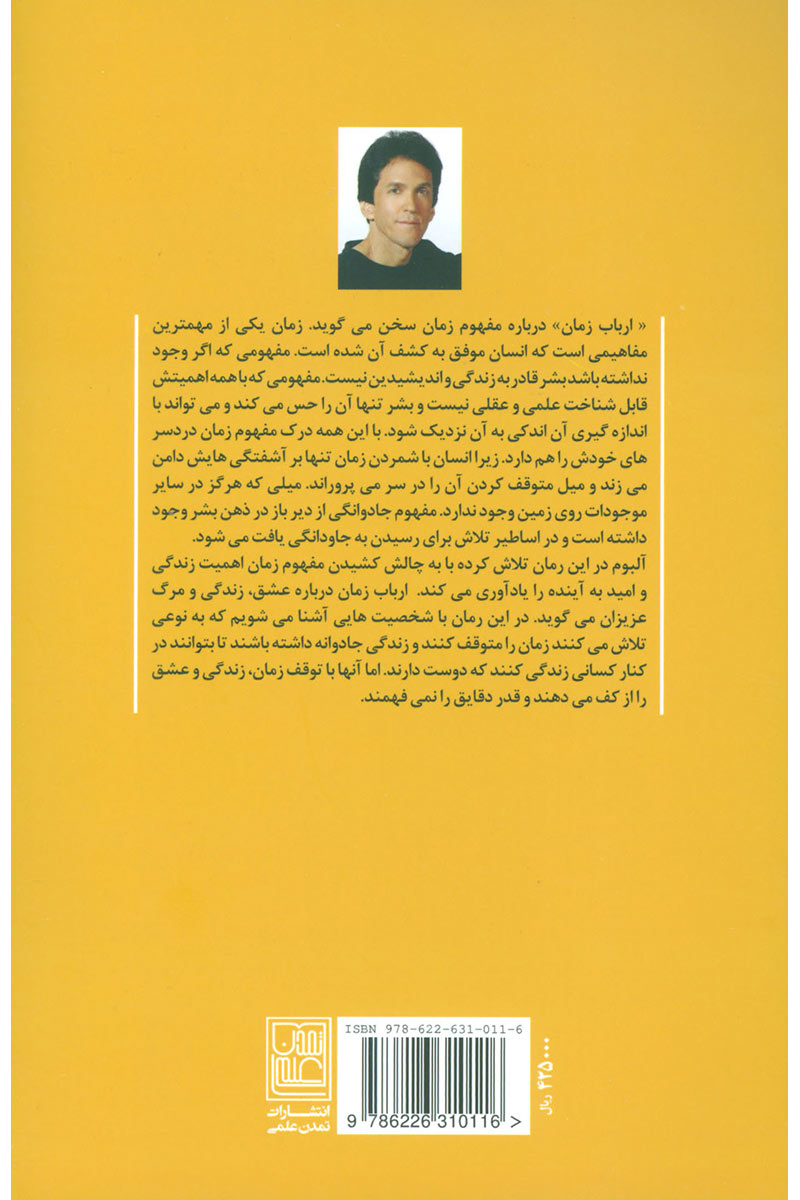 « ارباب زمان» درباره مفهوم زمان سخن می گوید. زمان یکی از مهمترین
مفاهیمی است که انسان موفق به کشف آن شده است. مفهومی که اگر وجود
نداشته باشد بشر قادر به زندگی و اندیشیدین نیست. مفهومی که با همه اهمیتش
قابل شناخت علمی و عقلی نیست و بشر تنها آن را حس می کند و می تواند با
اندازه گیری آن اندکی به آن نزدیک شود. با این همه درک مفهوم زمان دردسر
های خودش را هم دارد. زیرا انسان با شمردن زمان تنها بر آشفتگی هایش دامن
می زند و میل متوقف کردن آن را در سر می پروراند. میلی که هرگز در سایر
موجودات روی زمین وجود ندارد. مفهوم جادوانگی از دیر باز در ذهن بشر وجود
داشته است و در اساطیر تلاش برای رسیدن به جاودانگی یافت می شود.
آلبوم در این رمان تلاش کرده با به چالش کشیدن مفهوم زمان اهمیت زندگی
و امید به آینده را یادآوری می کند. ارباب زمان درباره عشق، زندگی و مرگ
عزیزان می گوید. در این رمان با شخصیت هایی آشنا می شویم که به نوعی
تلاش می کنند زمان را متوقف کنند و زندگی جادوانه داشته باشند تا بتوانند در
کنار کسانی زندگی کنند که دوست دارند. اما آنها با توقف زمان، زندگی و عشق
را از کف می دهند و قدر دقایق را نمی فهمند.
ISBN 978-622-631-011-6
9 786226 310116 >
۴۲۵۰۰۰ ریال
تمدن
علمی
انتشارات
تمدن علمی